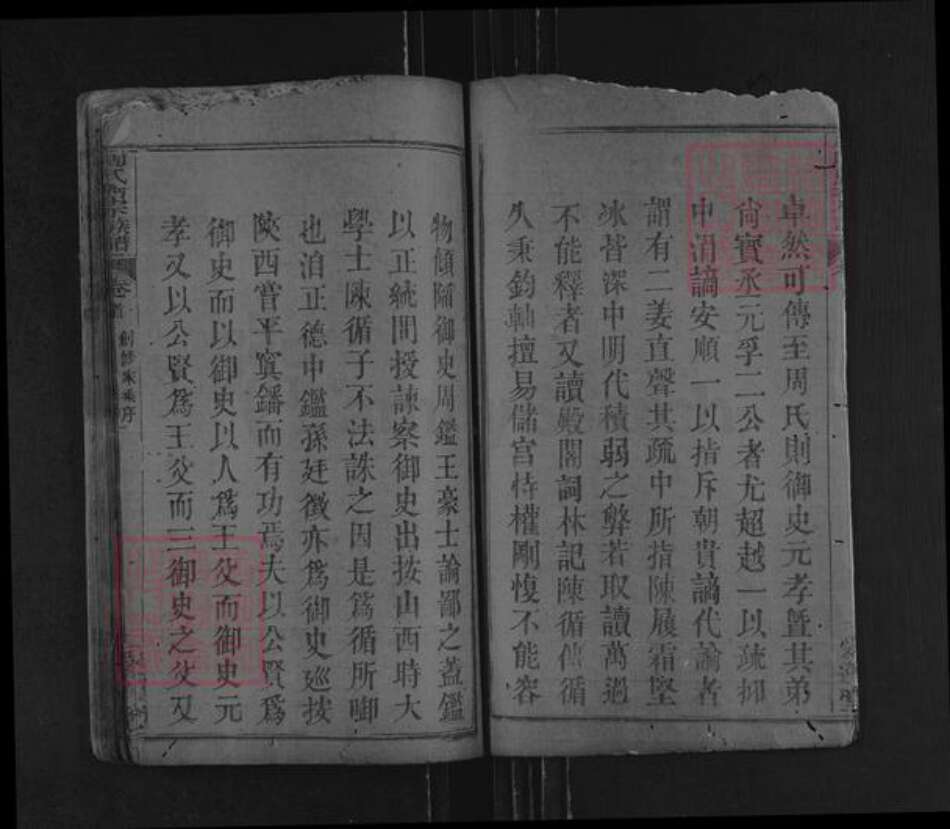 卓然可傳至周氏則御史元孝曁其弟
尙寶丞元孚二公者尤超越一以疏抑
中涓謫安順一以指斥朝貴謫代論者
謂有二姜直聲其疏中所指陳履霜堅
冰皆深中明代積弱之弊若取讀萬過
不能釋者又讀殿閣詞林記陳循傳循
久秉鈞軸擅易儲宮恃權剛愎不能容
物傾陷御史周鑑王豪士論鄙之蓋鑑
以正統間授諫察御史出按山西時大
學士陳循子不法誅之因是爲循所啣
也洎正德中鑑孫廷徵亦爲御史廵按
陝西嘗平寘鐇而有功焉夫以公賢爲
御史而以御史以人爲王父而御史元
孝又以公賢爲王父而三御史之父又
氏 宗族譜 卷首 創修家乘序